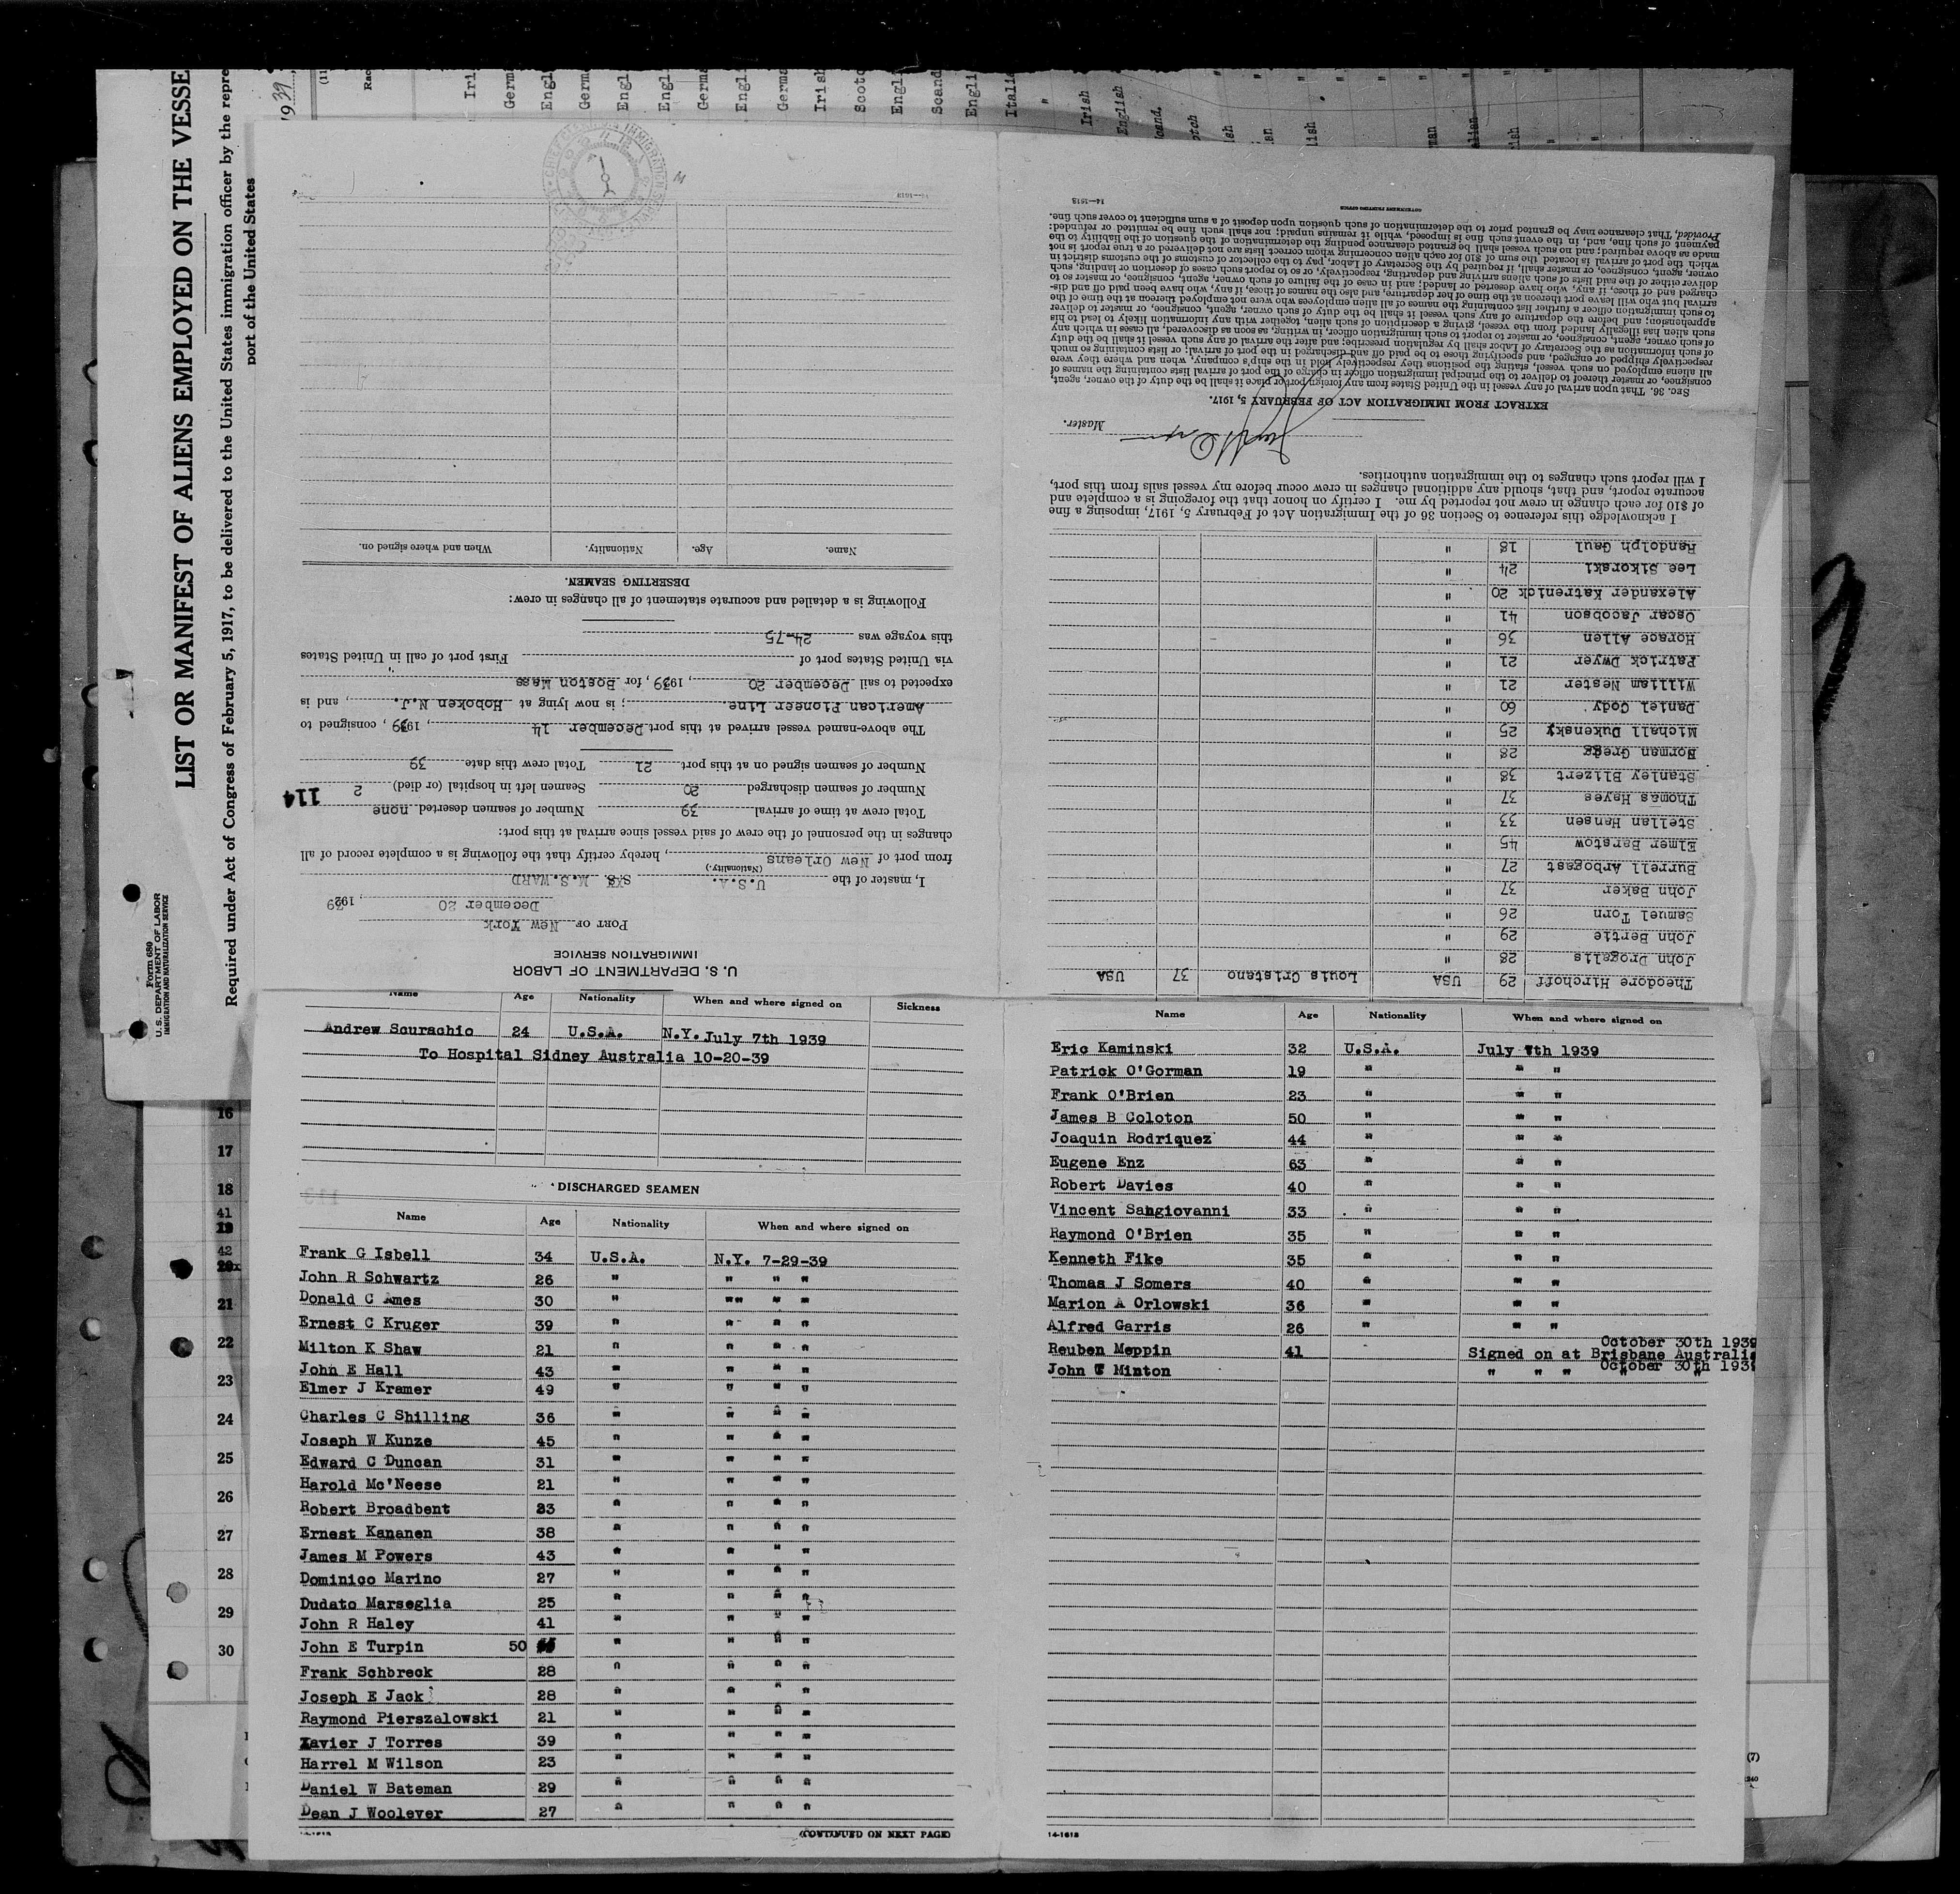 LIST OR MANIFEST OF ALIENS EMPLOYED ON THE VESSE
Required under Act of Congress of February 5, 1917, to be delivered to the United States immigration officer by the repre
port of the United States
Form 680
U. S. DEPARTMENT OF LABOR
IMMIGRATION AND NATURALIZATION SERVICE
U. S. DEPARTMENT OF LABOR
IMMIGRATION SERVICE
PORT OF New York
December 20, 1939
I, master of the U.S.A. M.S. WARD
(Nationality.)
from port of New Orleans, hereby certify that the following is a complete record of all
changes in the personnel of the crew of said vessel since arrival at this port:
Total crew at time of arrival 39 Number of seamen deserted none
Number of seamen discharged 20 Seamen left in hospital (or died) 2
114
Number of seamen signed on at this port 21 Total crew this date 39
The above-named vessel arrived at this port December 14, 1939, consigned to
American Pioneer Line. ; is now lying at Hoboken N.J., and is
expected to sail December 20, 1939, for Boston Mass
via United States port of " First port of call in United States
this voyage was 24-75
Following is a detailed and accurate statement of all changes in crew:
DESERTING SEAMEN.
Name. Age. Nationality. When and where signed on.
14—1618
Theodore Hirchoff 29 USA Louis Cristano 37 USA
John Drogalis 28 "
John Bertie 29 "
Samuel Torn 26 "
John Baker 37 "
Burrell Arbogast 27 "
Elmer Barstow 45 "
Stellan Hansen 33 "
Thomas Hayes 37 "
Stanley Blizert 38 "
Norman Gregg 28 "
Michall Dukensky 25 "
Daniel Cody 60 "
William Nester 21 "
Patrick Dwyer 21 "
Horace Allen 36 "
Oscar Jacobson 41 "
Alexander Katrenick 20 "
Lee Sikorski 24 "
Randolph Gaul 18 "
I acknowledge this reference to Section 36 of the Immigration Act of February 5, 1917, imposing a fine
of $10 for each change in crew not reported by me. I certify on honor that the foregoing is a complete and
accurate report, and that, should any additional changes in crew occur before my vessel sails from this port,
I will report such changes to the immigration authorities.
Master.
EXTRACT FROM IMMIGRATION ACT OF FEBRUARY 5, 1917.
SEC. 36. That upon arrival of any vessel in the United States from any foreign port or place it shall be the duty of the owner, agent,
consignee, or master thereof to deliver to the principal immigration officer in charge of the port of arrival lists containing the names of
all aliens employed on such vessel, stating the positions they respectively hold in the ship's company, when and where they were
respectively shipped or engaged, and specifying those to be paid off and discharged in the port of arrival; or lists containing so much
of such information as the Secretary of Labor shall by regulation prescribe; and after the arrival of any such vessel it shall be the duty
of such owner, agent, consignee, or master to report to such immigration officer, in writing, as soon as discovered, all cases in which any
such alien has illegally landed from the vessel, giving a description of such alien, together with any information likely to lead to his
apprehension; and before the departure of any such vessel it shall be the duty of such owner, agent, consignee, or master to deliver
to such immigration officer a further list containing the names of all alien employees who were not employed thereon at the time of the
arrival but who will leave port thereon at the time of her departure, and also the names of those, if any, who have been paid off and dis-
charged and of those, if any, who have deserted or landed; and in case of the failure of such owner, agent, consignee, or master so to
deliver either of the said lists of such aliens arriving and departing, respectively, or so to report such cases of desertion or landing, such
owner, agent, consignee, or master shall, if required by the Secretary of Labor, pay to the collector of customs of the customs district in
which the port of arrival is located the sum of $10 for each alien concerning whom correct lists are not delivered or a true report is not
made as above required; and no such vessel shall be granted clearance pending the determination of the question of the liability to the
payment of such fine, and, in the event such fine is imposed, while it remains unpaid; nor shall such fine be remitted or refunded:
Provided, That clearance may be granted prior to the determination of such question upon deposit of a sum sufficient to cover such fine.
14—1618 GOVERNMENT PRINTING OFFICE
Name Age Nationality When and where signed on Sickness
Andrew Scurachio 24 U.S.A. N.Y. July 7th 1939
To Hospital Sidney Australia 10-20-39
DISCHARGED SEAMEN
Name Age Nationality When and where signed on
Frank G Isbell 34 U.S.A. N.Y. 7-29-39
John R Schwartz 26 " " " "
Donald C Ames 30 " "" " "
Ernest C Kruger 39 " " " "
Milton K Shaw 21 " " " "
John E Hall 43 " " " "
Elmer J Kramer 49 " " " "
Charles C Shilling 36 " " " "
Joseph W Kunze 45 " " " "
Edward C Duncan 31 " " " "
Harold Mc'Neese 21 " " " "
Robert Broadbent 23 " " " "
Ernest Kananen 38 " " " "
James M Powers 43 " " " "
Dominico Marino 27 " " " "
Dudato Marseglia 25 " " " "
John R Haley 41 " " " "
John E Turpin 50 " " " "
Frank Schbreck 28 " " " "
Joseph E Jack 28 " " " "
Raymond Pierszalowski 21 " " " "
Xavier J Torres 39 " " " "
Harrel M Wilson 23 " " " "
Daniel W Bateman 29 " " " "
Dean J Woolever 27 " " " "
(CONTINUED ON NEXT PAGE)
Name Age Nationality When and where signed on
Eric Kaminski 32 U.S.A. July 7th 1939
Patrick O'Gorman 19 " " "
Frank O'Brien 23 " " "
James B Coloton 50 " " "
Joaquin Rodriquez 44 " " "
Eugene Enz 63 " " "
Robert Davies 40 " " "
Vincent Sangiovanni 33 " " "
Raymond O'Brien 35 " " "
Kenneth Fike 35 " " "
Thomas J Somers 40 " " "
Marion A Orlowski 36 " " "
Alfred Garris 26 " " "
October 30th 1939
Reuben Meppin 41 Signed on at Brisbane Australia
October 30th 1939
John T Minton " " " " "
14-1618
16
17
18
41
19
42
20x
21
22
23
24
25
26
27
28
29
30
(7)